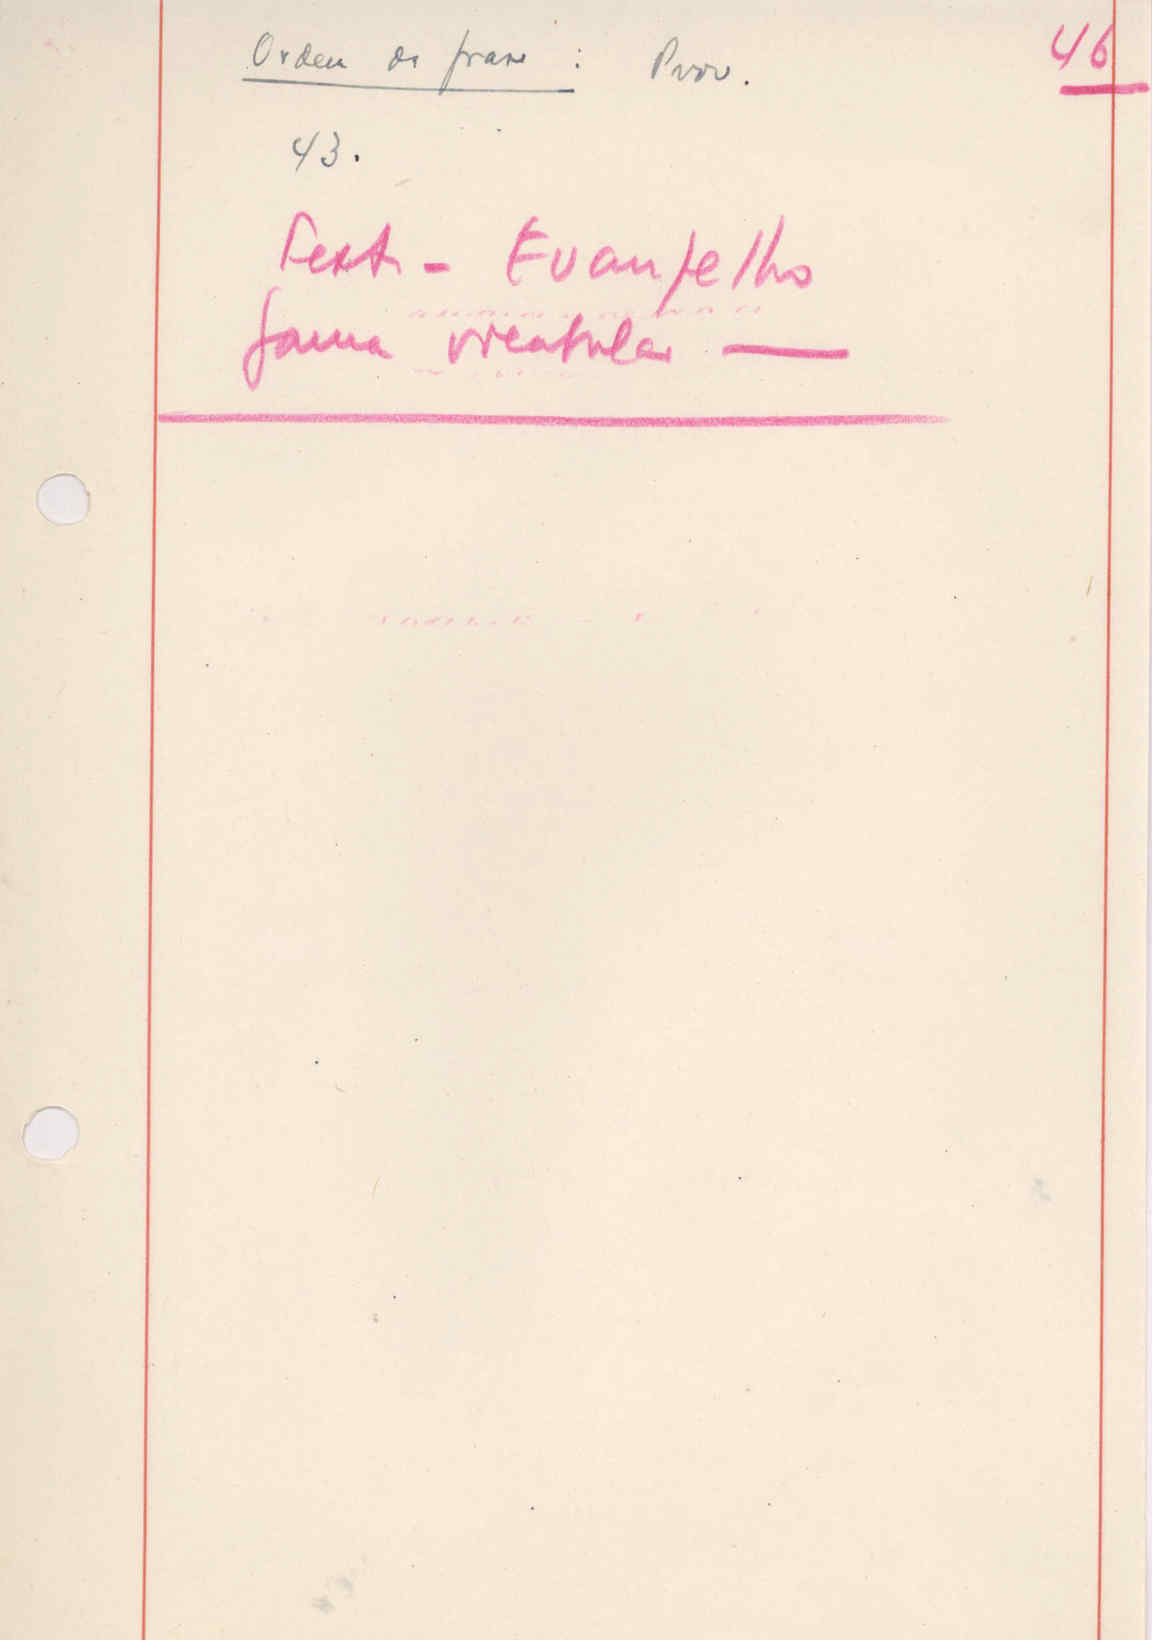 Ordem da frase : Prov.
46
43.
Text. - Evangelho
forma vocabular —